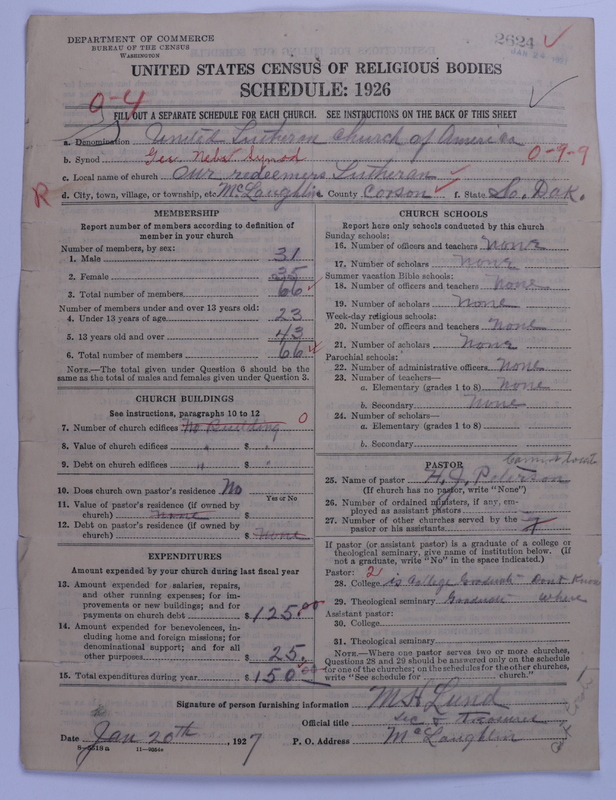 DEPARTMENT OF COMMERCE
BUREAU OF THE CENSUS
WASHINGTON
2624
UNITED STATES CENSUS OF RELIGIOUS BODIES
SCHEDULE: 1926
0-4
FILL OUT A SEPARATE SCHEDULE FOR EACH CHURCH. SEE INSTRUCTIONS ON THE BACK OF THIS SHEET
a. Denomination United Lutheran Church of America
b. Synod Ger. Nebr Synod 0-9-9
c. Local name of church Our redeemers Lutheran
R d. City, town, village, or township, etc. McLaughlin County Corson f. State So. Dak.
MEMBERSHIP
Report number of members according to definition of
member in your church
Number of members, by sex:
1. Male 31
2. Female 35
3. Total number of members 66
Number of members under and over 13 years old:
4. Under 13 years of age 23
5. 13 years old and over 43
6. Total number of members 66
NOTE.—The total given under Question 6 should be the
same as the total of males and females given under Question 3.
CHURCH BUILDINGS
See instructions, paragraphs 10 to 12
7. Number of church edifices No Building 0
8. Value of church edifices " $ "
9. Debt on church edifices " $
10. Does church own pastor's residence No
Yes or No
11. Value of pastor's residence (if owned by
church) None $
12. Debt on pastor's residence (if owned by
church) $ None
EXPENDITURES
Amount expended by your church during last fiscal year
13. Amount expended for salaries, repairs,
and other running expenses; for im-
provements or new buildings; and for
payments on church debt $ 125.00
14. Amount expended for benevolences, in-
cluding home and foreign missions; for
denominational support; and for all
other purposes $ 25.
15. Total expenditures during year $ 150.00
CHURCH SCHOOLS
Report here only schools conducted by this church
Sunday schools:
16. Number of officers and teachers None
17. Number of scholars None
Summer vacation Bible schools:
18. Number of officers and teachers None
19. Number of scholars None
Week-day religious schools:
20. Number of officers and teachers None
21. Number of scholars None
Parochial schools:
22. Number of administrative officers None
23. Number of teachers—
a. Elementary (grades 1 to 8) None
b. Secondary None
24. Number of scholars—
a. Elementary (grades 1 to 8)
b. Secondary
PASTOR
25. Name of pastor H. J. Peterson
(If church has no pastor, write "None")
26. Number of ordained ministers, if any, em-
ployed as assistant pastors
27. Number of other churches served by the
pastor or his assistants
If pastor (or assistant pastor) is a graduate of a college or
theological seminary, give name of institution below. (If
not a graduate, write "No" in the space indicated.)
Pastor: 2
28. College is College Graduate - Dont Know
29. Theological seminary Graduate - Where
Assistant pastor:
30. College
31. Theological seminary
NOTE.—Where one pastor serves two or more churches,
Questions 28 and 29 should be answered only on the schedule
for one of the churches; on the schedules for the other churches,
write "See schedule for church."
Signature of person furnishing information M H Lund
Official title Sec & Treasurer
Date Jan 20th, 1927 P. O. Address McLaughlin
8-5518a 11-9024a